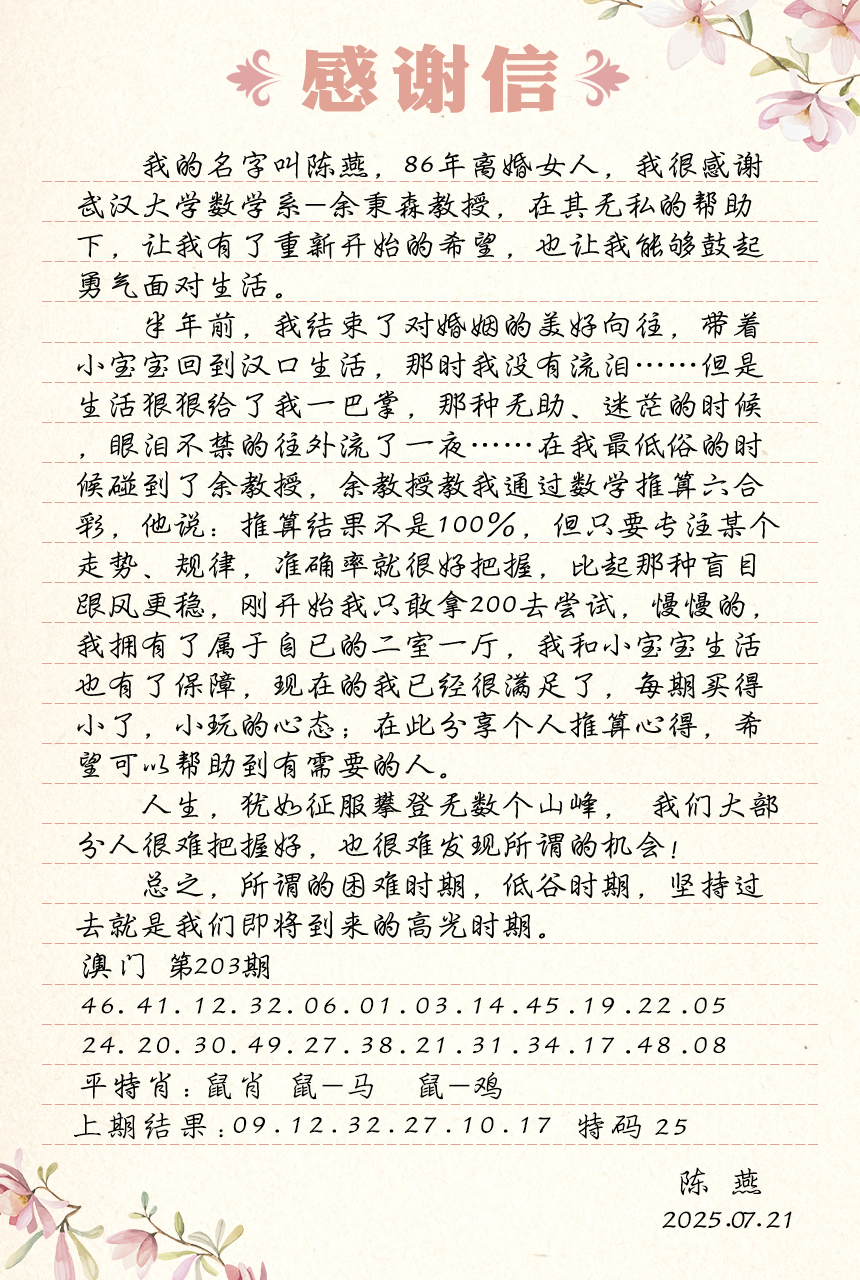 感谢信
我的名字叫陈燕，86年离婚女人，我很感谢
武汉大学数学系—余秉森教授，在其无私的帮助
下，让我有了重新开始的希望，也让我能够鼓起
勇气面对生活。
半年前，我结束了对婚姻的美好向往，带着
小宝宝回到汉口生活，那时我没有流泪……但是
生活狠狠给了我一巴掌，那种无助、迷茫的时候
，眼泪不禁的往外流了一夜……在我最低俗的时
候碰到了余教授，余教授教我通过数学推算六合
彩，他说：推算结果不是100%，但只要专注某个
走势、规律，准确率就很好把握，比起那种盲目
跟风更稳，刚开始我只敢拿200去尝试，慢慢的，
我拥有了属于自已的二室一厅，我和小宝宝生活
也有了保障，现在的我已经很满足了，每期买得
小了，小玩的心态；在此分享个人推算心得，希
望可以帮助到有需要的人。
人生，犹如征服攀登无数个山峰， 我们大部
分人很难把握好，也很难发现所谓的机会！
总之，所谓的困难时期，低谷时期，坚持过
去就是我们即将到来的高光时期。
澳门 第203期
46.41.12.32.06.01.03.14.45.19.22.05
24.20.30.49.27.38.21.31.34.17.48.08
平特肖：鼠肖 鼠—马 鼠—鸡
上期结果：09.12.32.27.10.17 特码 25
陈 燕
2025.07.21